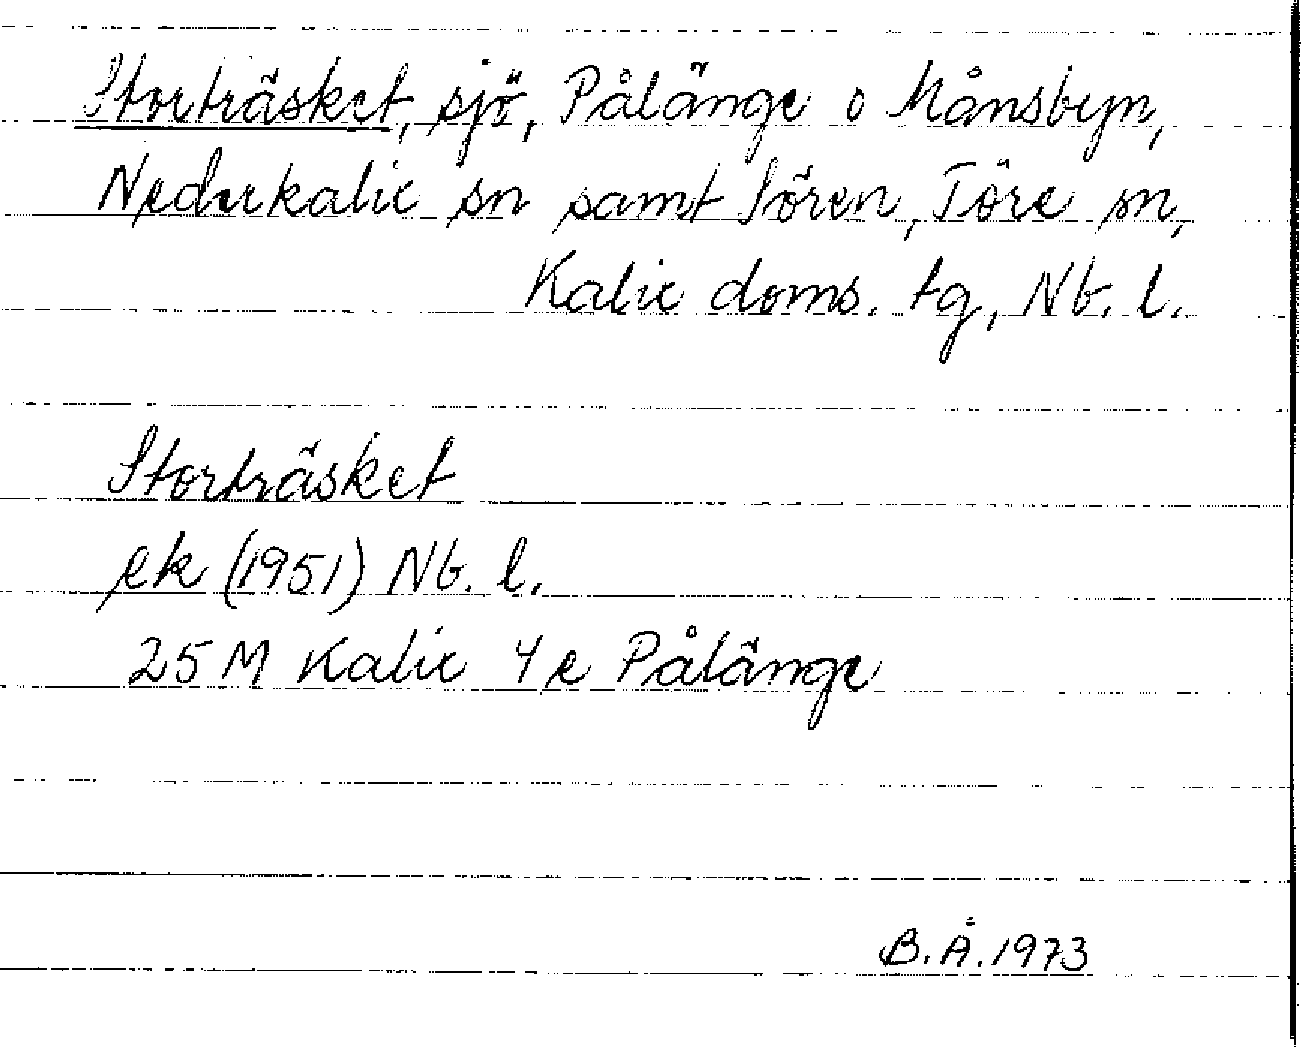 Storträsket, sjö, Pålänge o Månsbyn,
Nederkalix sn samt Sören, Töre sn,
Kalix doms. tg, Nb. l.
Storträsket
ek (1951) Nb. l.
25 M Kalix 4 e Pålänge
B.Å. 1973